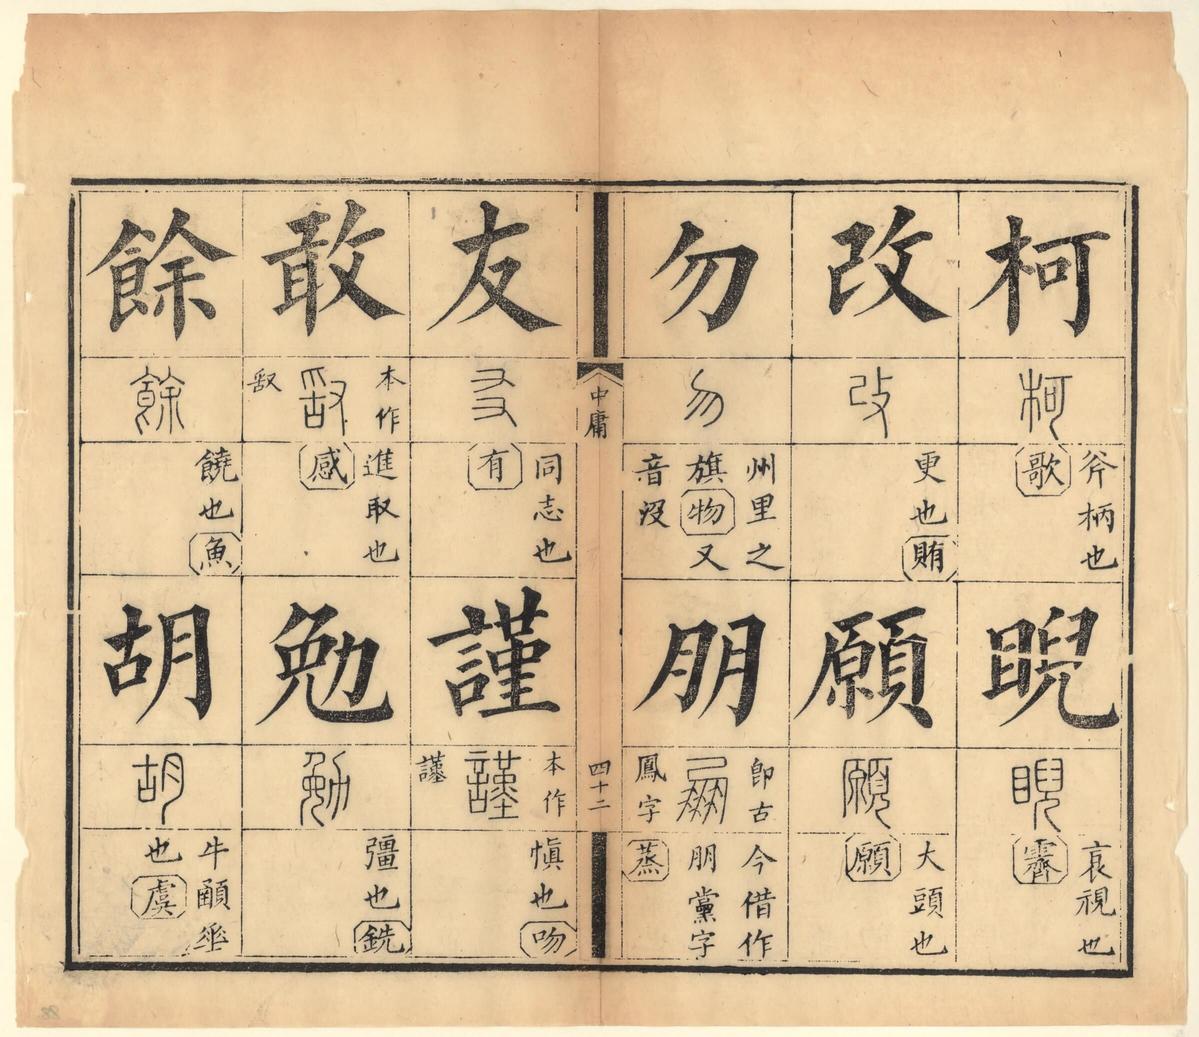 柯
柯
斧柄也
歌
睨
睨
衺視也
霽
改
改
更也
賄
願
願
大頭也
願
勿
勿
州里之
旗物又
音沒
朋
朋
卽古
鳳字
今借作
朋黨字
蒸
中庸
四十二
友
友
同志也
有
謹
本作
謹
愼也
吻
敢
本作
敢
進取也
感
勉
勉
彊也
銑
餘
餘
饒也
魚
胡
胡
牛顄𠂹
也
虞